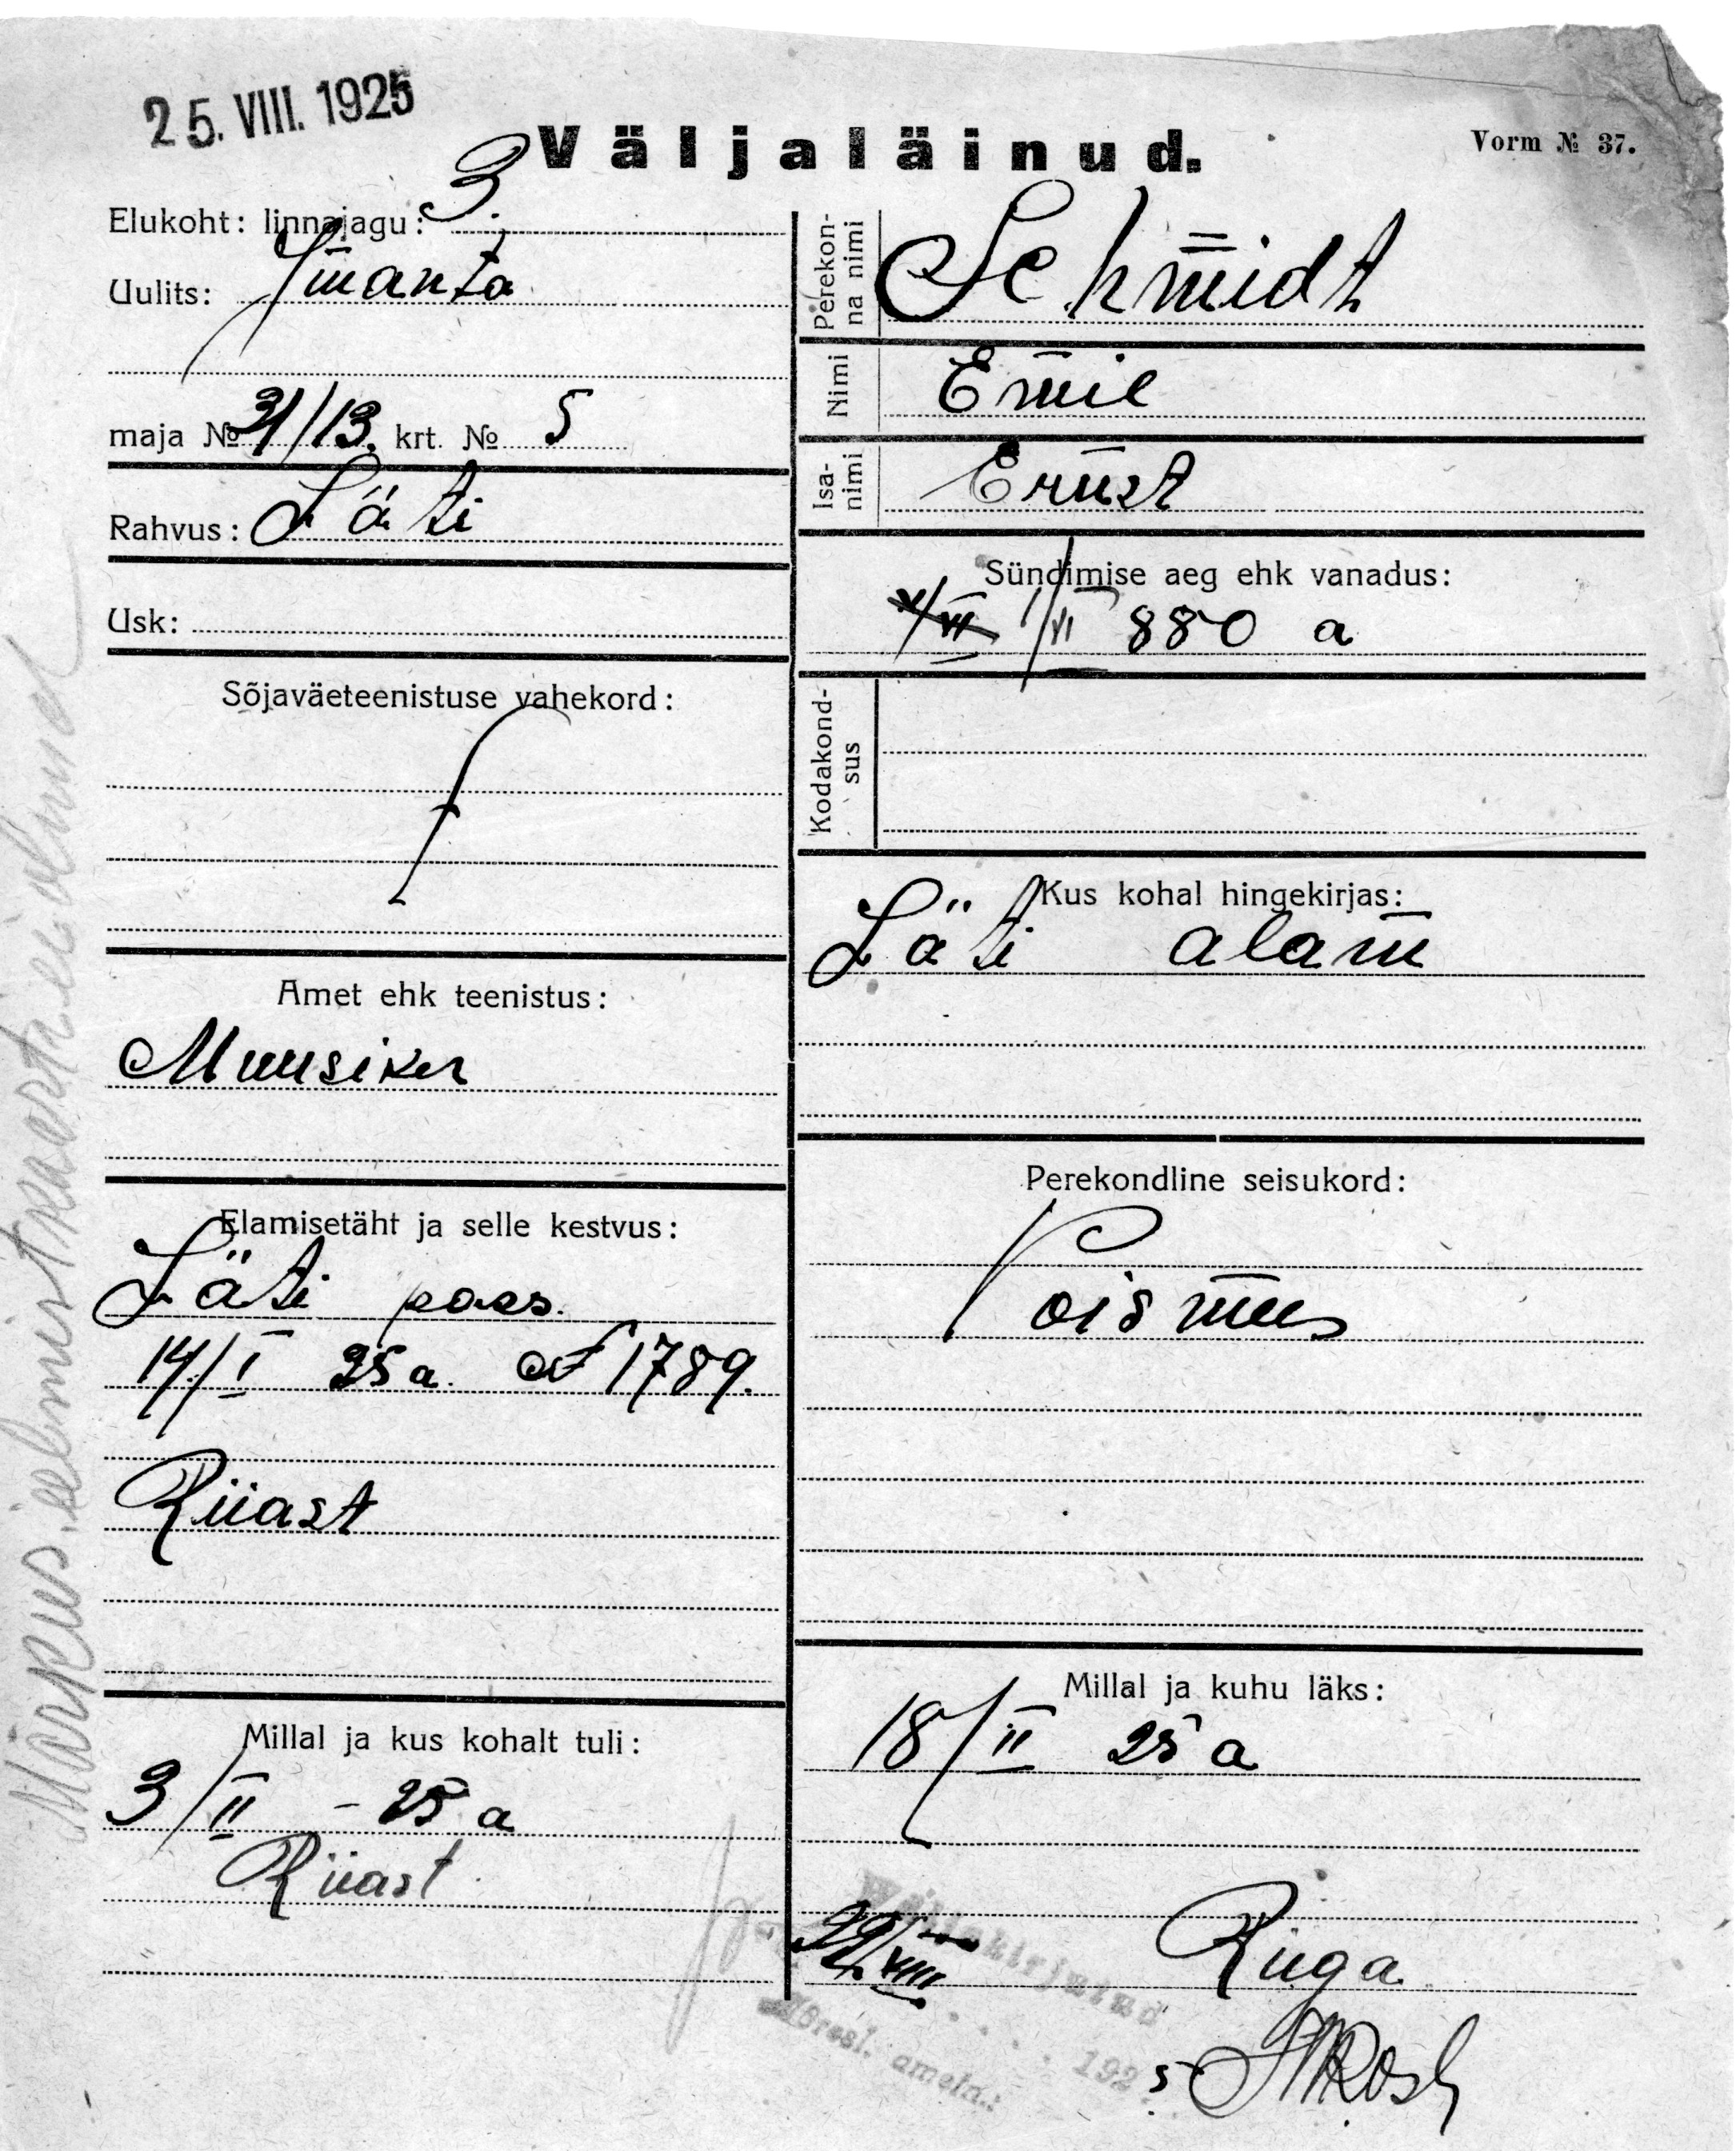 25. VIII. 1925
Väljaläinud.
Vorm № 37.
Elukoht: linnajagu: 3.
Uulits: Imanta
maja № 31/13. krt. № 5
Rahvus: Läti
Usk:
Sõjaväeteenistuse vahekord:
Amet ehk teenistus:
Muusiker
Elamisetäht ja selle kestvus:
Läti pass.
14/I 25 a. № 1789.
Riiast
Millal ja kus kohalt tuli:
3/II - 25 a
Riiast
Perekonna nimi
Schmidt
Nimi
Emil
Isanimi
Ernst
Sündimise aeg ehk vanadus:
1/VI 880 a
Kodakondsus
Kus kohal hingekirjas:
Läti alam
Perekondline seisukord:
Poismees
Millal ja kuhu läks:
18/II 25 a
Riiga
22/VIII
Väljakirjutud
192 5
Aadressl. ametn.:
Märkus. eelmist kaarti ei olnud